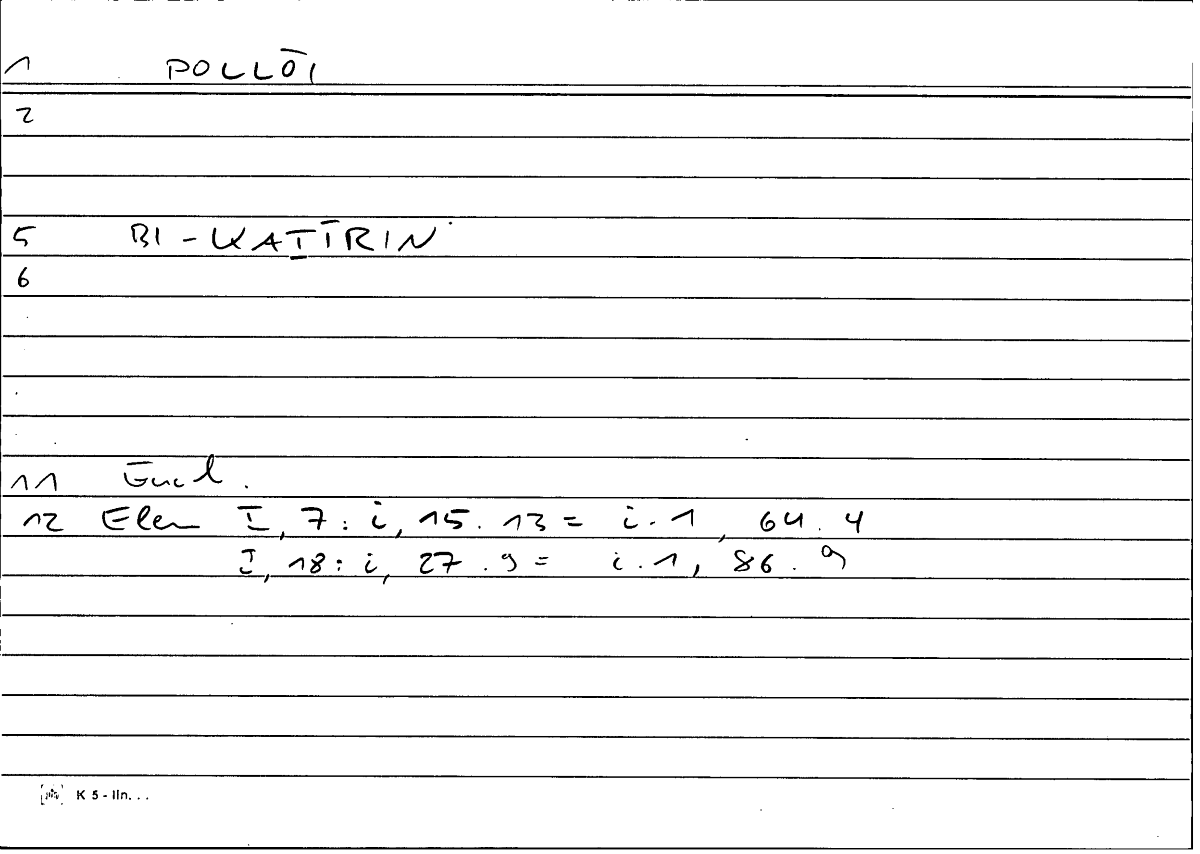 1 POLLŌI
2
5 BI-KAṮĪRIN
6
11 Eucl.
12 Elem I, 7: i, 15.13 = i.1, 64.4
I, 18: i, 27.9 = i.1, 86.9
K 5 - lin. . .